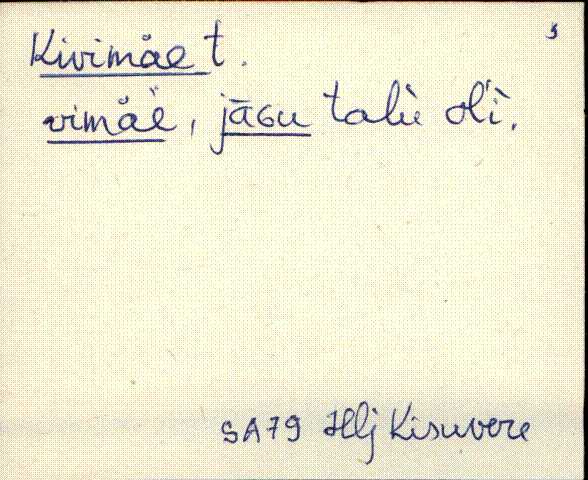 Kivimäe t.
vimäè, jāsu taliè ol'ì.
SA79 Hlj Kisuvere